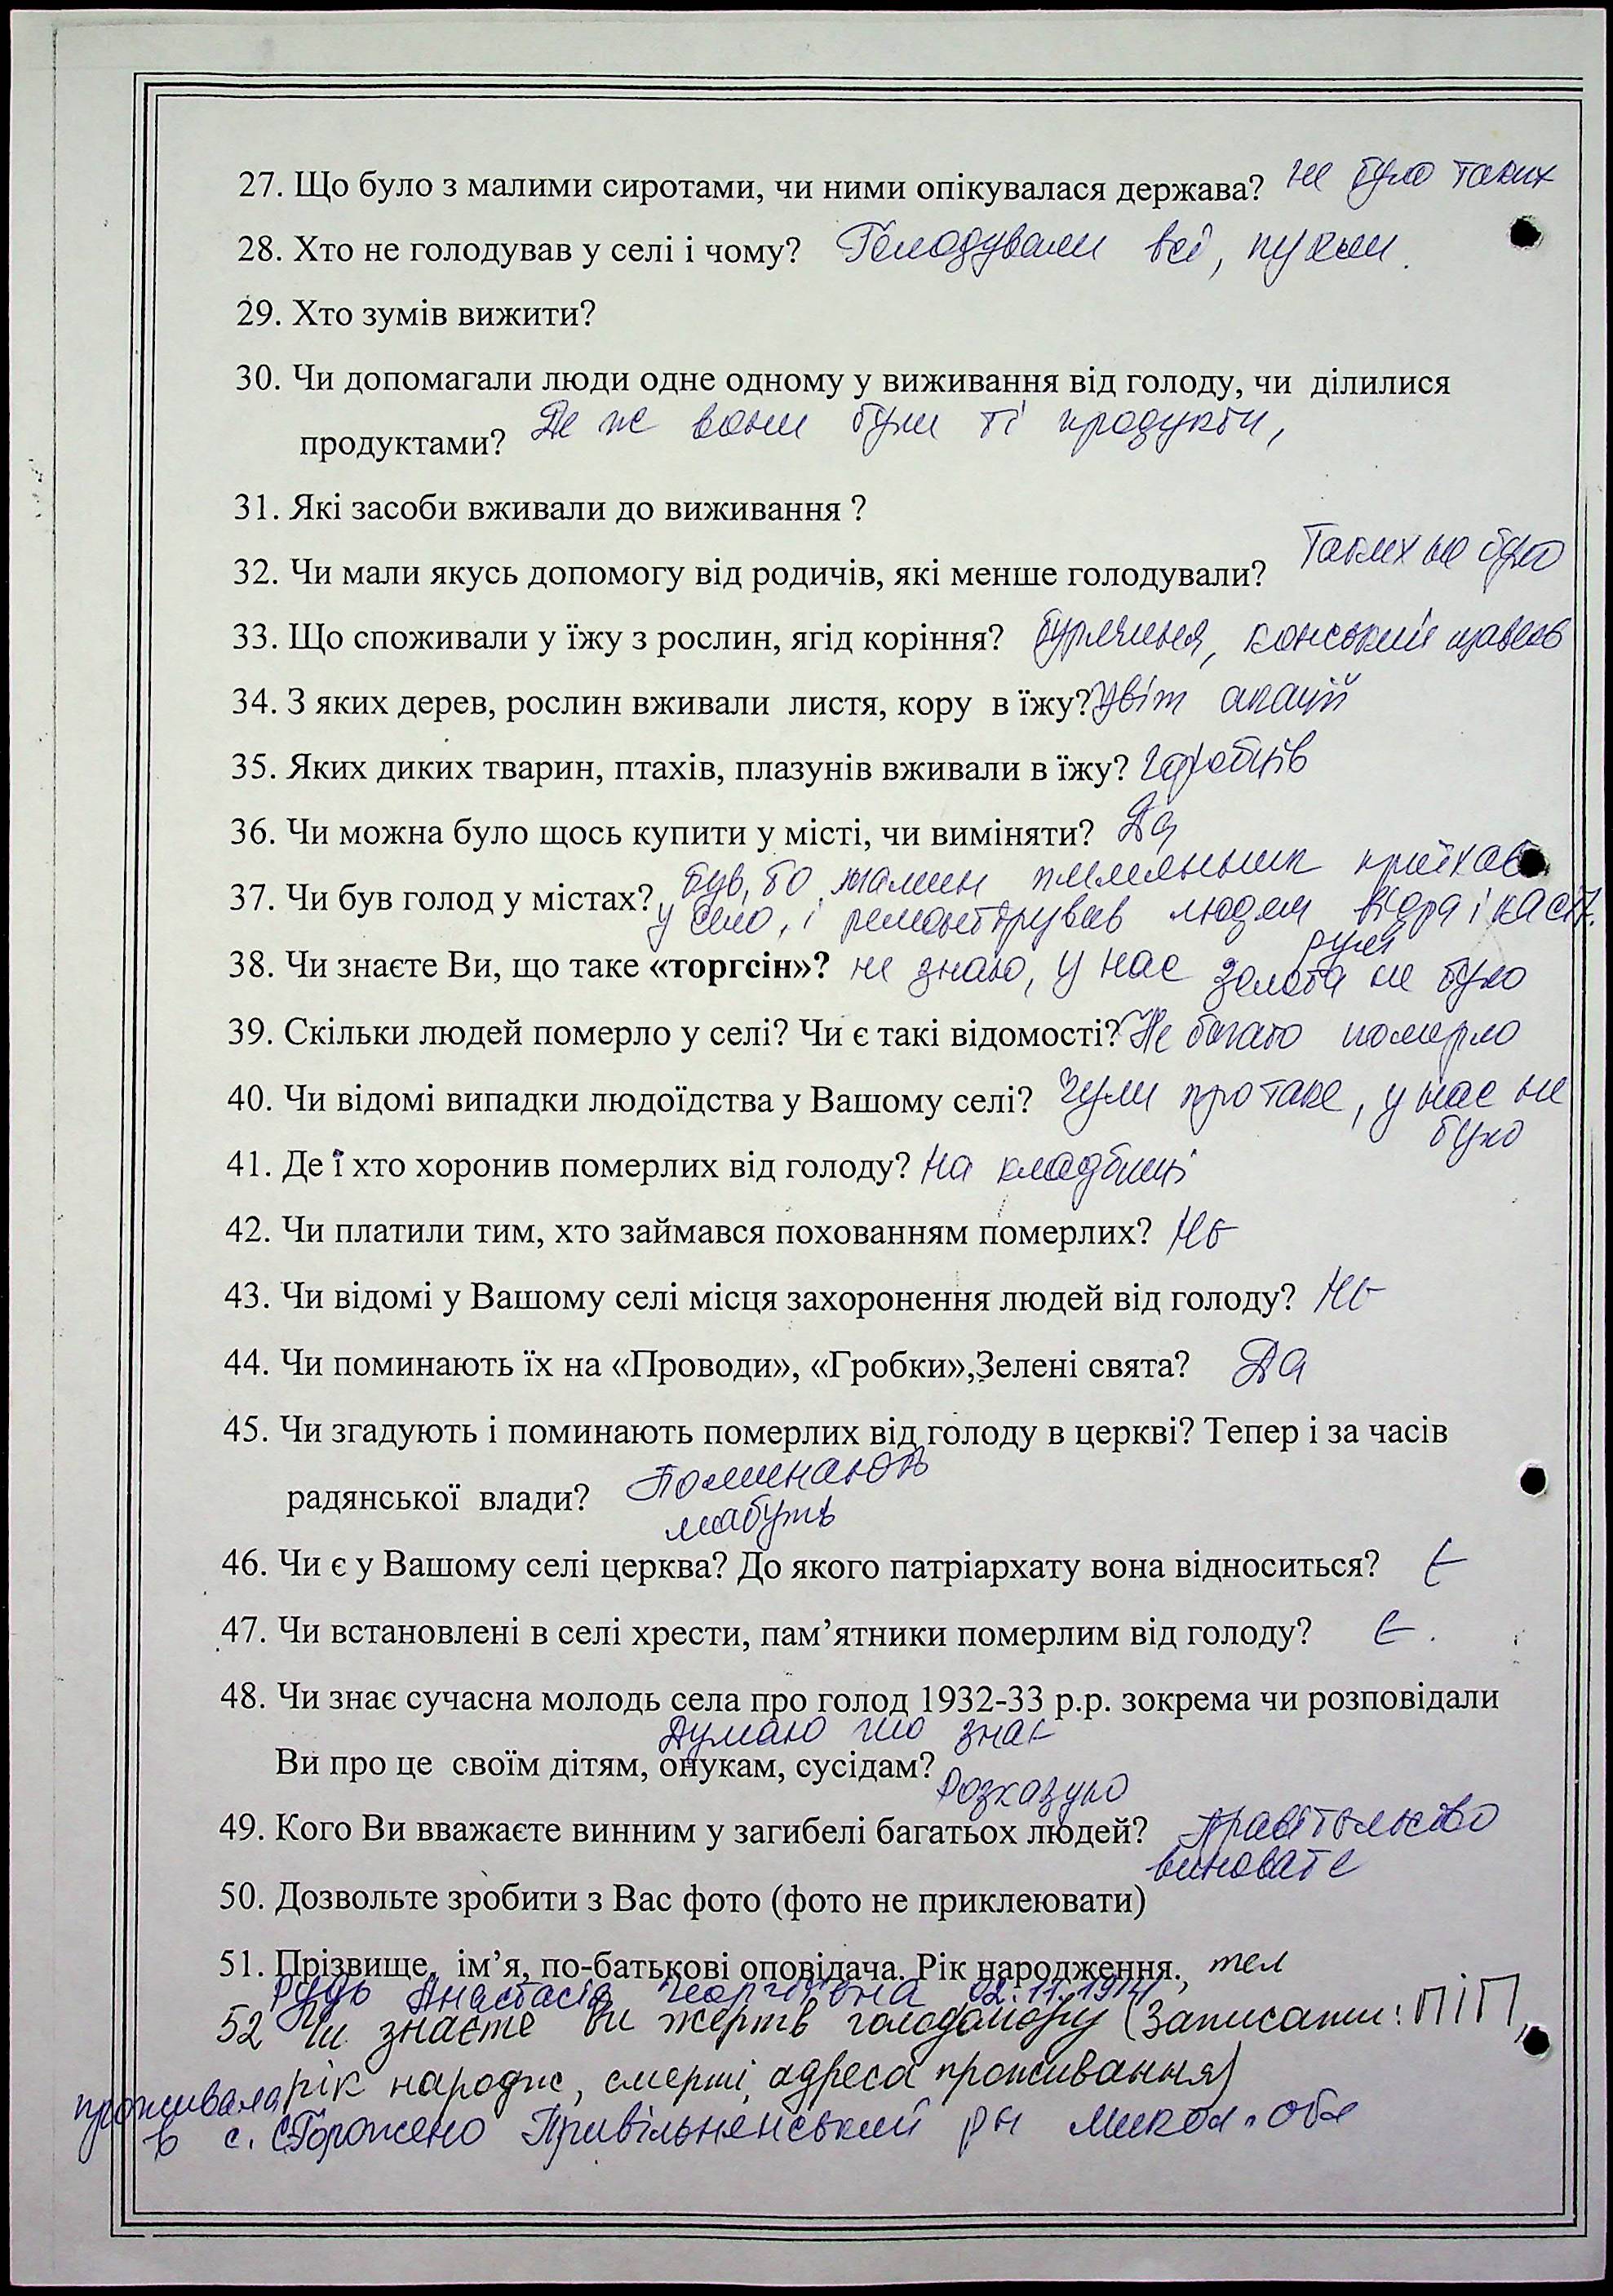 27. Що було з малими сиротами, чи ними опікувалася держава? не було таких
28. Хто не голодував у селі і чому? Голодували всі, пухли.
29. Хто зумів вижити?
30. Чи допомагали люди одне одному у виживання від голоду, чи ділилися
продуктами? Де ж вони були ті продукти,
31. Які засоби вживали до виживання ?
32. Чи мали якусь допомогу від родичів, які менше голодували? Таких не було
33. Що споживали у їжу з рослин, ягід коріння? бурячиня, конський щавель
34. З яких дерев, рослин вживали листя, кору в їжу? Цвіт акації
35. Яких диких тварин, птахів, плазунів вживали в їжу? Горобців
36. Чи можна було щось купити у місті, чи виміняти? Да
37. Чи був голод у містах? був, бо мамин племенник приїхав
у село, і ремонтірував людям відра і каст.
38. Чи знаєте Ви, що таке «торгсін»? не знаю, у нас золота не було
39. Скільки людей померло у селі? Чи є такі відомості? Не багато померло
40. Чи відомі випадки людоїдства у Вашому селі? Чули про таке, у нас не
було
41. Де і хто хоронив померлих від голоду? На кладбищі
42. Чи платили тим, хто займався похованням померлих? Нє
43. Чи відомі у Вашому селі місця захоронення людей від голоду? Нє
44. Чи поминають їх на «Проводи», «Гробки»,Зелені свята? Да
45. Чи згадують і поминають померлих від голоду в церкві? Тепер і за часів
радянської влади? Поминають
мабуть
46. Чи є у Вашому селі церква? До якого патріархату вона відноситься? Є
47. Чи встановлені в селі хрести, пам’ятники померлим від голоду? Є.
48. Чи знає сучасна молодь села про голод 1932-33 р.р. зокрема чи розповідали
Думаю що знає
Ви про це своїм дітям, онукам, сусідам?
Розказую
49. Кого Ви вважаєте винним у загибелі багатьох людей? правітельство
виновате
50. Дозвольте зробити з Вас фото (фото не приклеювати)
51. Прізвище, ім’я, по-батькові оповідача. Рік народження., тел
Рудь Анастасія Георгіївна 02.11.1914
52 Чи знаєте Ви жертв голодомору (Записати: ПІП,
рік народж, смерті, адреса проживання)
проживала
в с. Горожено Привільненський рн Микол. обл